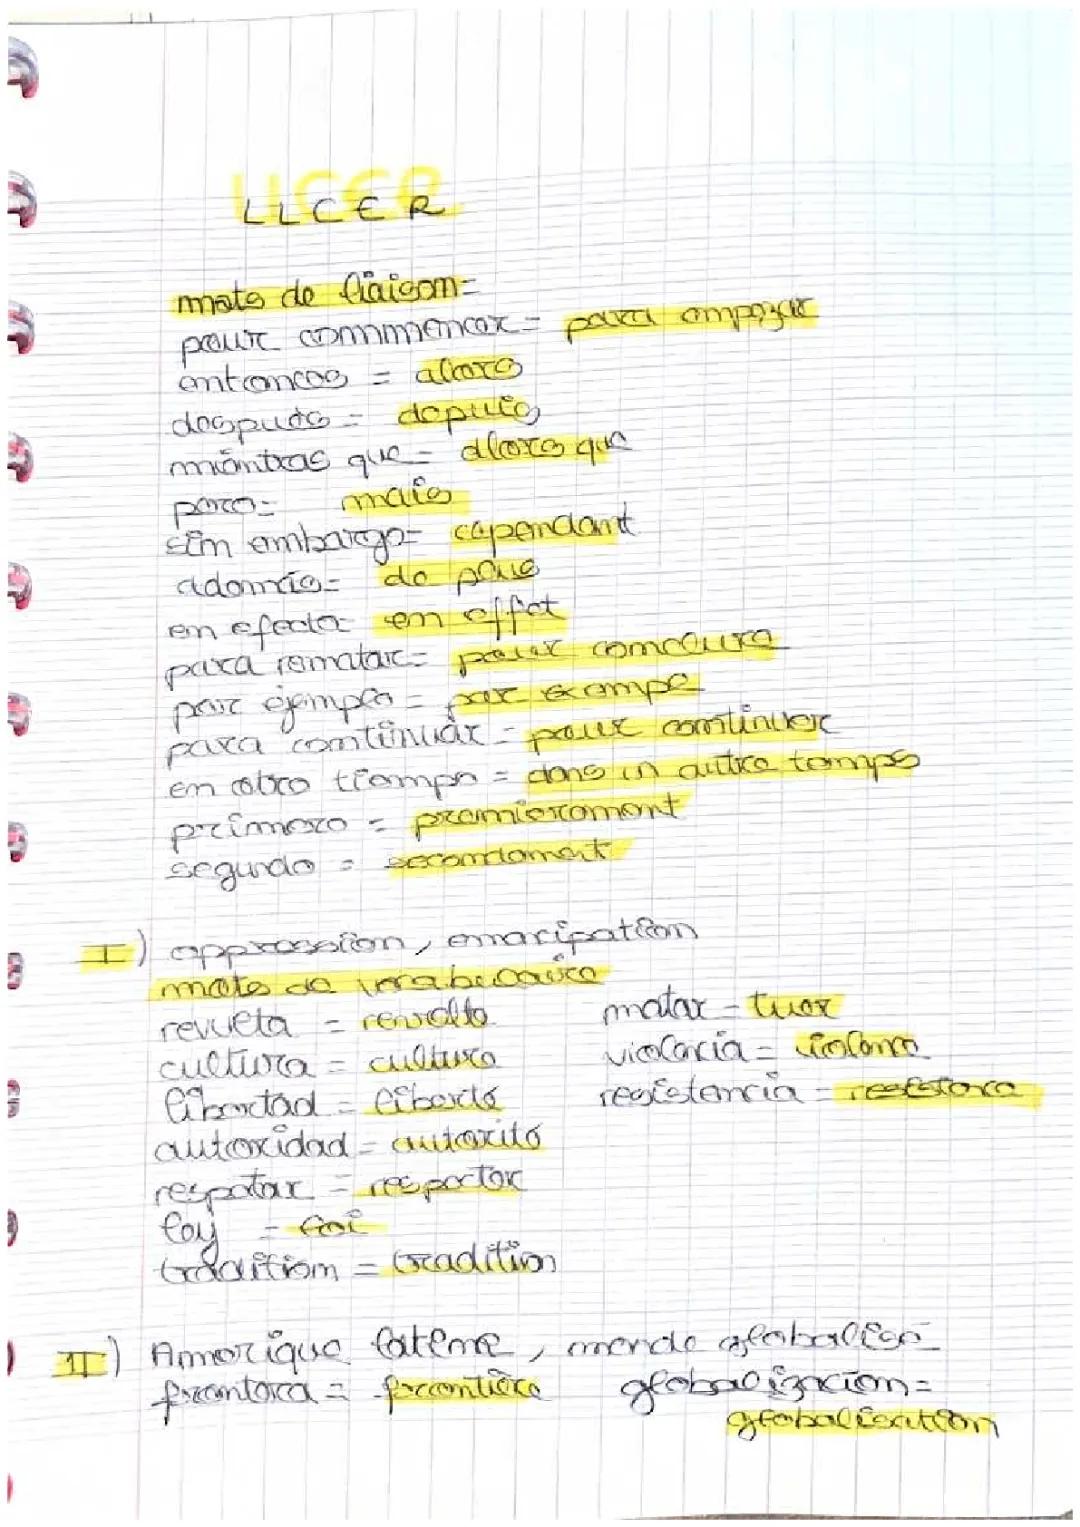 LLCER
mots de liaison=
pour commencer = para empezar
entonces = alors
después = depuis
miéntras que = alors que
pero = mais
sin embargo = cependant
además = de plus
en efecto = en effet
para rematar = pour conclure
por ejemplo = par exempe
para continuar = pour continuer
en otro tiempo = dans un autre temps
primero = premierement
segundo = secondement
I) oppression, emacipation
mots de vocabulaire
revueta = revolte
matar = tuer
cultura = culture
violencia = violence
libertad = liberté
resistencia =
autoridad = autorité
respetar = respecter
ley = loi
tradition = tradition
II) Amerique latine, monde globalisé
frontera = frontière
globalizacion =
globalisation